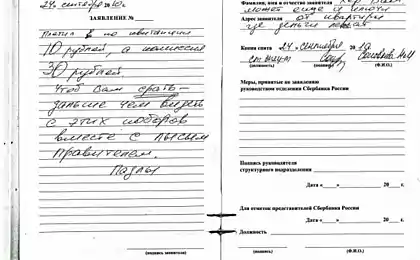 24 сентября 20 10 г.
ЗАЯВЛЕНИЕ №
Платил я по квитанции
10 рублей, а комиссия
30 рублей
Чтоб Вам срать
дальше чем видеть
с этих поборов
вместе с лысым
правителем.
(подпись заявителя)
Фамилия, имя и отчество заявителя
может ещё и
Адрес заявителя от квартиры
где деньги лежат
Копия снята 24 сентября 20 10
(должность) (подпись) (Ф.И.О.)
Меры, принятые по заявлению
руководителем отделения Сбербанка России
Подпись руководителя
структурного подразделения
Дата «___» 20___ г.
Для отметок представителей Сбербанка России
Дата «___» 20___ г.
Должность
(подпись) (Ф.И.О.)